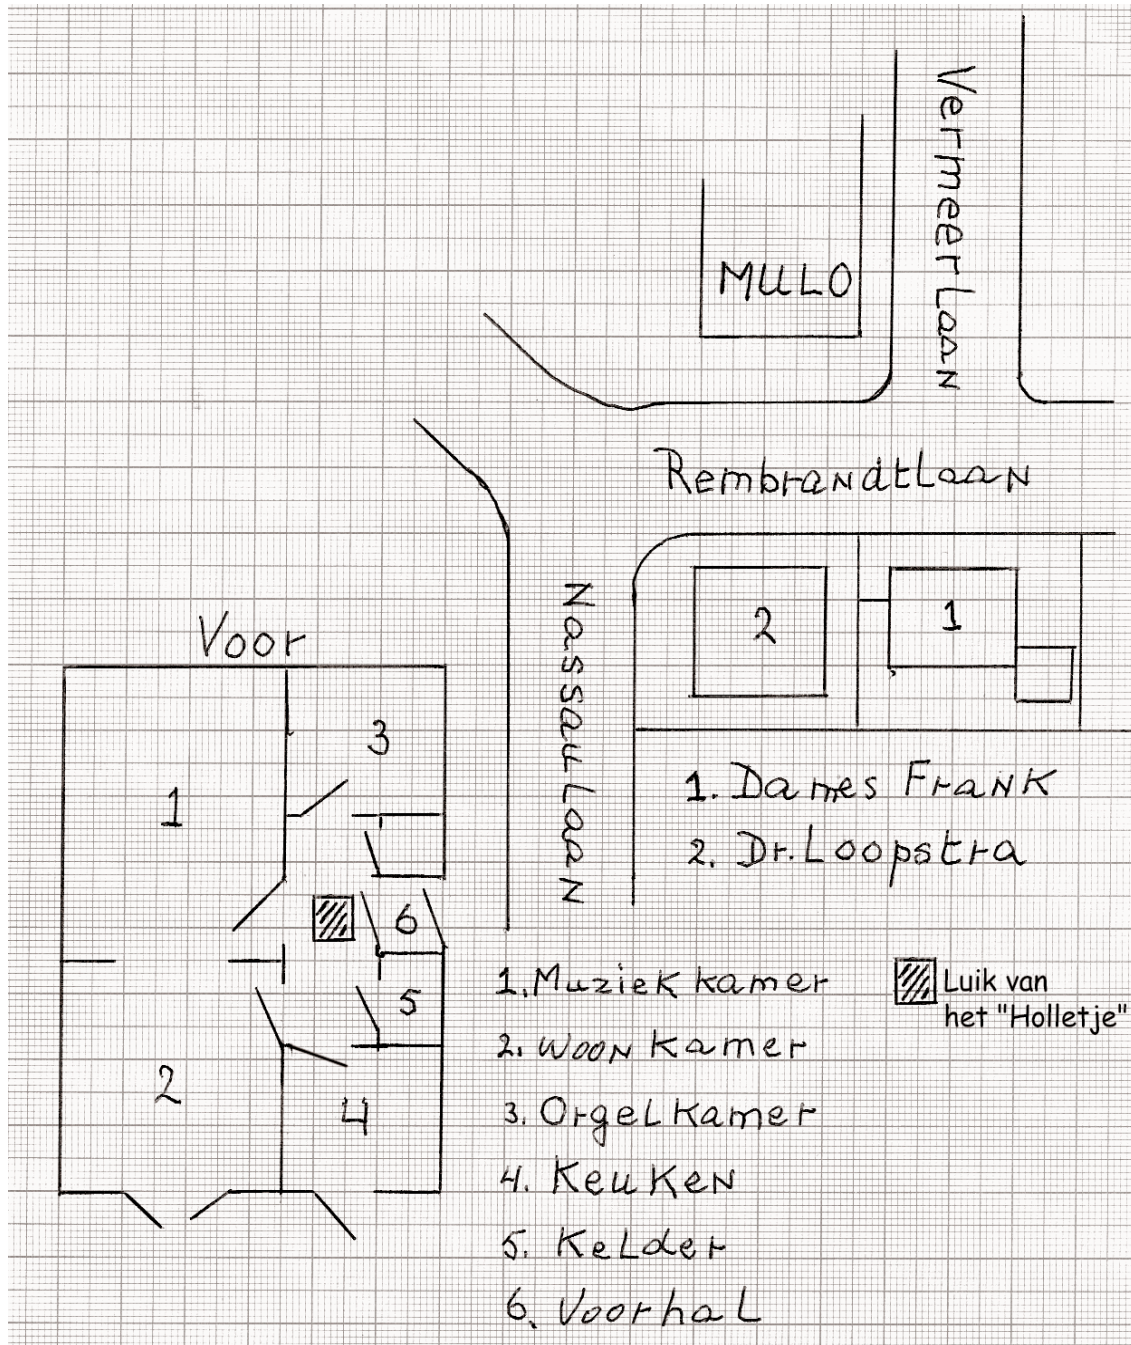 Vermeerlaan
MULO
Rembrandtlaan
Nassaulaan
2
1
Voor
1
3
6
5
2
4
1. Dames Frank
2. Dr. Loopstra
1. Muziekkamer
2. Woonkamer
3. Orgelkamer
4. Keuken
5. Kelder
6. Voorhal
Luik van
het "Holletje"